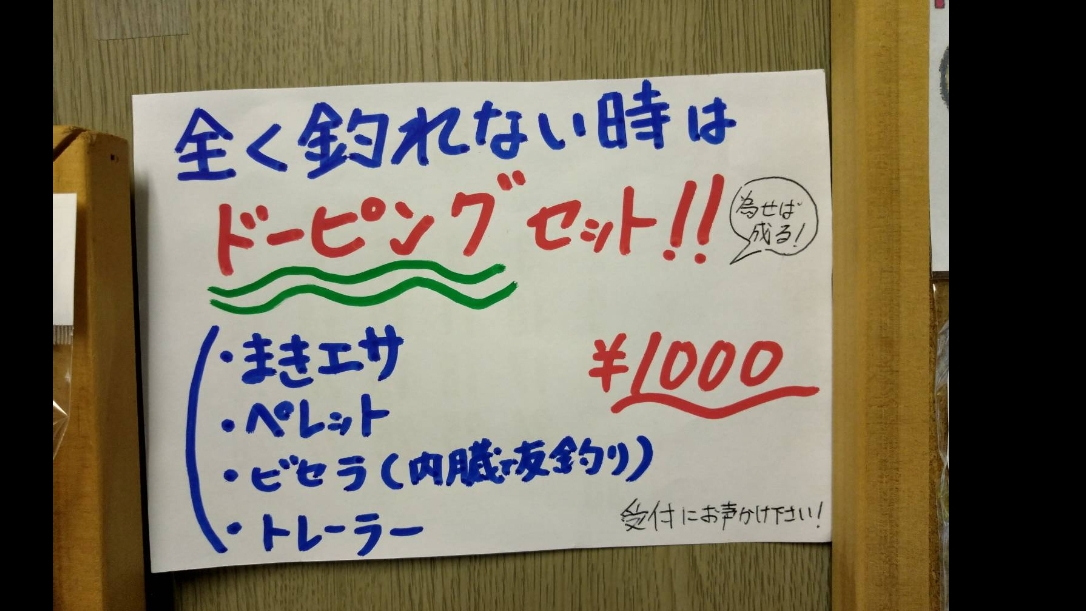 全く釣れない時は
ドーピングセット!!
為せば
成る!
・まきエサ
・ペレット
・ビセラ(内臓で友釣り)
・トレーラー
¥1000
受付にお声かけ下さい!